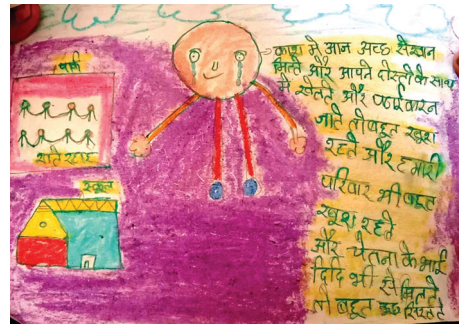 पार्क
स्कूल
काश मे आन अच्छ
मिलते और आपने दोस्तो के साथ
मे खेलते और
जाते तो बहुत खुश
रहते और हमारी
परिवार भी बहुत
खुश रहते
और चेतना के भाई
दिदि भी से मिलते
तो बहुत कुछ सिखते